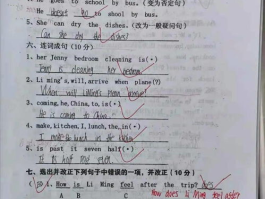 He goes to school by bus. (变为否定句)
He doesn't go to school by bus.
5. She can dry the dishes. (改为一般疑问句)
Can she dry the dishes?
六、连词成句(10 分)
1. her Jenny bedroom cleaning is(.)
Jenny is cleaning her bedroom.
2. Li ming's, will, arrive when plane(?)
3. coming, he, China, to, is(.)
He is coming to China.
4. make, kitchen, I, lunch, the, will, in(.)
5. is past it seven half(.)
It is half past seven.
七、选出并改正下列句子中错误的一项，并改正(10 分)
1. How is Li Ming feel after the trip?
A B C
How does Li Ming feel after